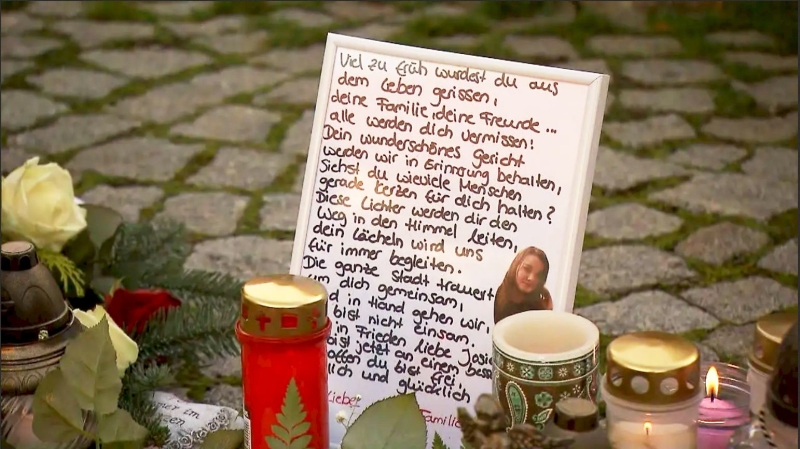 Viel zu früh wurdest du aus
dem Leben gerissen,
deine Familie, deine Freunde...
alle werden dich vermissen!
Dein wunderschönes gericht
werden wir in Erinnrung behalten,
Siehst du wieviele Menschen
gerade Kerzen für dich halten?
Diese Lichter werden dir den
Weg in den Himmel leiten,
dein Lächeln wird uns
für immer begleiten.
Die ganze Stadt trauert
um dich gemeinsam,
d in Hand gehen wir,
bist nicht einsam.
in Frieden liebe Josie
bist jetzt an einem bess
offen du bist frei
lich und glücklich
Liebe
Familie
mer im
en